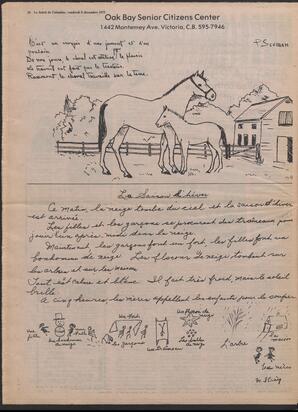 Le Soleil de Colombie, vendredi 9 décembre 1977
Oak Bay Senior Citizens Center
1442 Monterney Ave. Victoria, C.B. 595-7946
C'est un moyen d'une jument et d'un
poulain
De nos jours, le cheval est utilisé le plaisir
Le travail est fait par le tracteur.
Rarement le cheval travaille sur la terre.
La Saison d'hiver
Ce matin, la neige tombe du ciel et la saison d'hiver
est arrivée.
Les filles et les garçons se procurent des traîneaux pour
jouer l'après-midi dans la neige.
Maintenant, les garçons font un fort, les filles font un
bonhomme de neige. Les flocons de neige tombent sur
les arbres et sur les maisons.
Tout est calme et blanc. Il fait très froid, mais le soleil
brille.
A cinq heures, les mères appellent les enfants pour le souper.
Une fille
Un bonhomme de neige
Un fort
Les garçons
Un traîneau
Un flocon de neige
Les balles de neige
L'arbre
La maison
Les mères